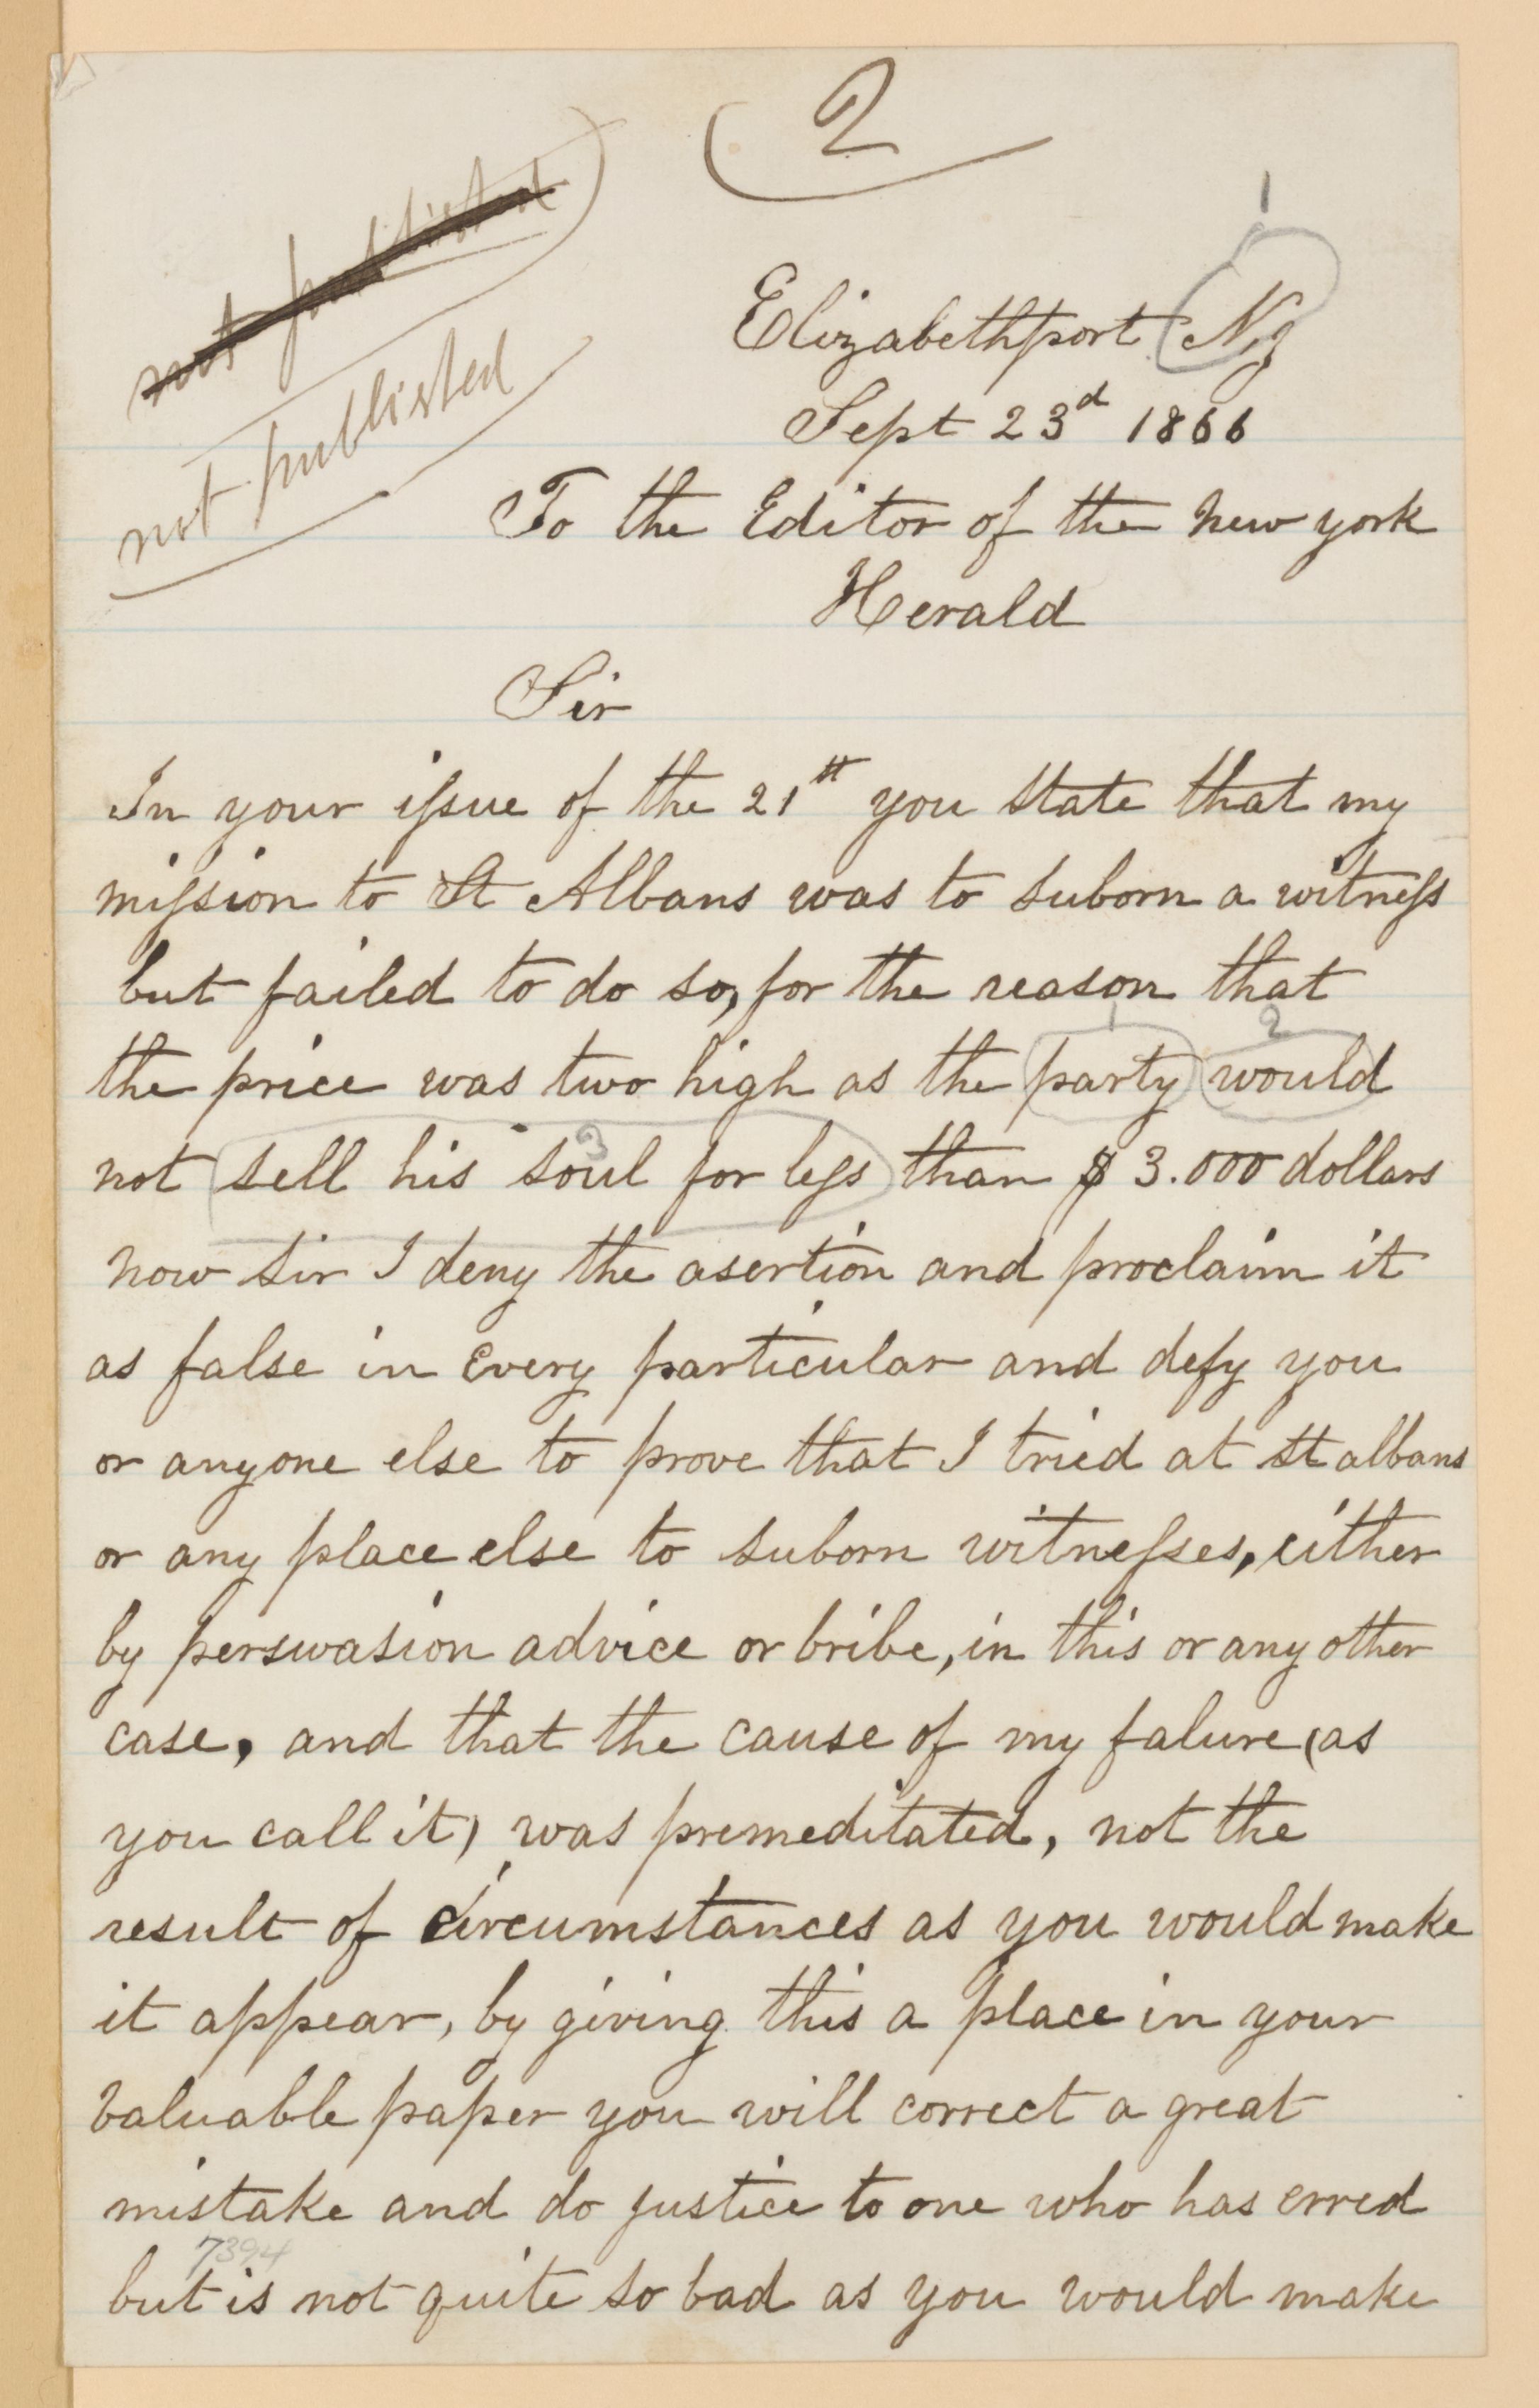 2
1
not published
not published
Elizabethport NJ
Sept 23d 1866
To the Editor of the new york
Herald
Sir
In your issue of the 21st you state that my
mission to St Albans was to suborn a witness
but failed to do so, for the reason that
1 2
the price was two high as the party would
3
not sell his soul for less than $ 3.000 dollars
now sir I deny the asertion and proclaim it
as false in every particular and defy you
or anyone else to prove that I tried at st albans
or any place else to suborn witnesses, either
by perswasion advice or bribe, in this or any other
case, and that the cause of my falure (as
you call it) was premeditated, not the
result of circumstances as you would make
it appear, by giving this a place in your
valuable paper you will correct a great
mistake and do justice to one who has erred
7394
but is not quite so bad as you would make